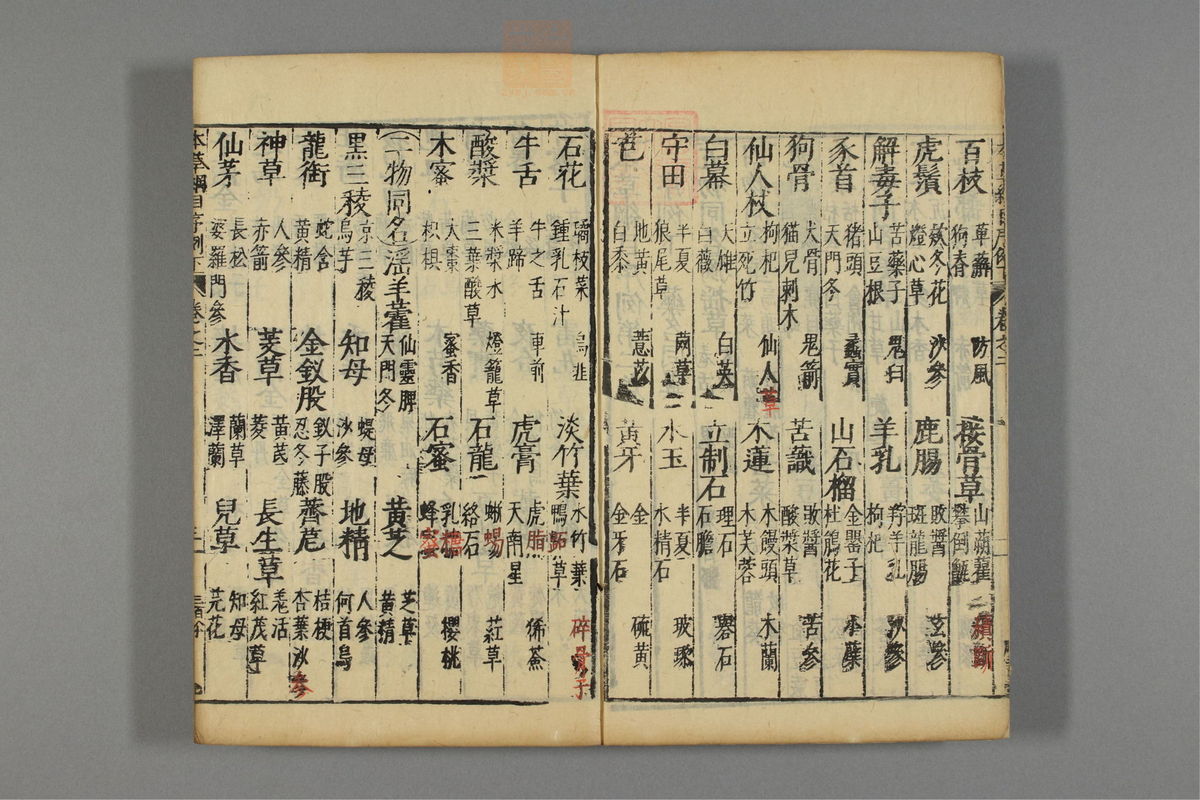 百枝 萆薢 狗脊 防風
接骨草 山蒴藋 攀倒甑 續斷
虎鬚 欵冬花 燈心草 沙參
鹿腸 敗醬 斑龍腸 玄參
解毒子 苦藥子 山豆根 鬼臼
羊乳 羚羊乳 枸杞 沙參
豕首 猪頭 天門冬 蠡實
山石榴 金罌子 杜鵑花 小蘗
狗骨 犬骨 猫兒刺木 鬼箭
苦蘵 敗醬 酸漿草 苦參
仙人杖 枸杞 立死竹 仙人草
木蓮 木饅頭 木芙蓉 木蘭
白幕 天雄 白薇 白英
立制石 理石 石膽 礜石
守田 半夏 狼尾草 䒽草
水玉 半夏 水精石 玻瓈
芑 地黃 白黍 薏苡
黃牙 金 金牙石 硫黃
石花 璚枝菜 鍾乳石汁 烏韭
淡竹葉 水竹葉 鴨跖草 碎骨子
牛舌 牛之舌 羊蹄 車前
虎膏 虎脂 天南星 豨薟
酸漿 米漿水 三葉酸草 燈籠草
石龍 蜥蜴 絡石 葒草
木蜜 大棗 枳椇 蜜香
石蜜 乳糖 蜂蜜 櫻桃
(二物同名)淫羊藿 仙靈脾 天門冬
黃芝 芝草 黃精
黑三稜 京三稜 烏芋
知母 蝭母 沙參
地精 人參 何首烏
龍銜 蛇含 黃精
金釵股 釵子股 忍冬藤
薺苨 桔梗 杏葉沙參
神草 人參 赤箭
芰草 黃芪 菱
長生草 羌活 紅茂草
仙茅 長松 婆羅門參
水香 蘭草 澤蘭
兒草 知母 芫花
本草綱目序例下 卷之二